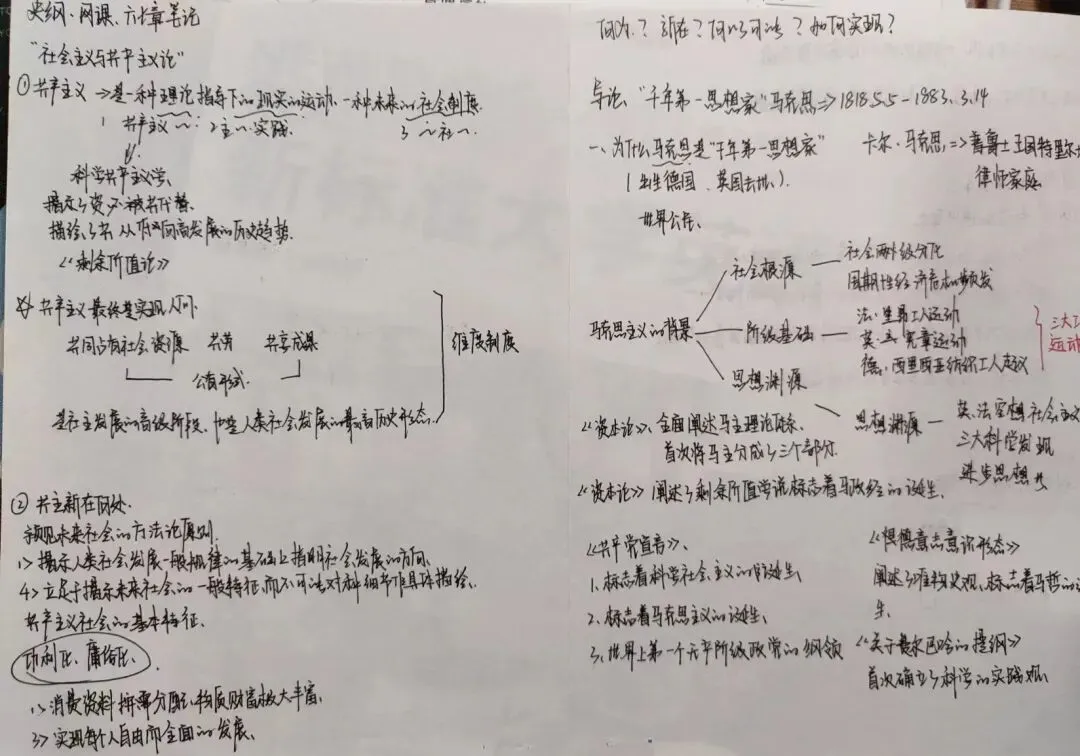 笔记
"社会主义与共产主义论"
① 共产主义 → 是一种理论指导下的现实的运动、一种未来的社会制度
1 共产主义～: 2 主～实践 3 ～社～.
科学共产主义学、
揭示了资必被共代替、
描绘了共从低级向高发展的历史趋势
《剩余价值论》
共产主义最终是实现人的
共同占有社会资源 共劳 共享成果
公有形式
维度制度
是社主发展的高级阶段、也是人类社会发展的最高历史形态
② 共主新在何处.
预见未来社会的方法论原则
1> 揭示人类社会发展一般规律的基础上指明社会发展的方向、
4> 立足于揭示未来社会的一般特征而不可能对种细节作具体描绘、
共产主义社会的基本特征.
功利化、庸俗化、
1> 消费资料按需分配、物质财富极大丰富、
3> 实现每个人自由而全面的发展、
何为? 新在? 何以可能? 如何实现?
导论、"千年第一思想家"马克思 => 1818.5.5-1883.3.14
一、为什么马克思是"千年第一思想家"
(出生德国、英国去世、).
卡尔·马克思, => 普鲁士王国特里尔
律师家庭
世界公仆、
马克思主义的背景
社会根源 — 社会两极分化
周期性经济危机频发
阶级基础 — 法·里昂工人运动
英·宪章运动
德·西里西亚纺织工人起义
三大工
运动
思想渊源
思想渊源 — 英、法空想社会主义
三大科学发现
进步思想
《资本论》、全面阐述马主理论体系、
首次将马主分成了三个部分
《资本论》阐述了剩余价值学说标志着马政经的诞生、
《共产党宣言》、
1、标志着科学社会主义的诞生、
2、标志着马克思主义的诞生、
3、世界上第一个无产阶级政党的纲领
《德意志意识形态》
阐述了唯物史观、标志着马哲的诞
生、
《关于费尔巴哈的提纲》
首次确立了科学的实践观、